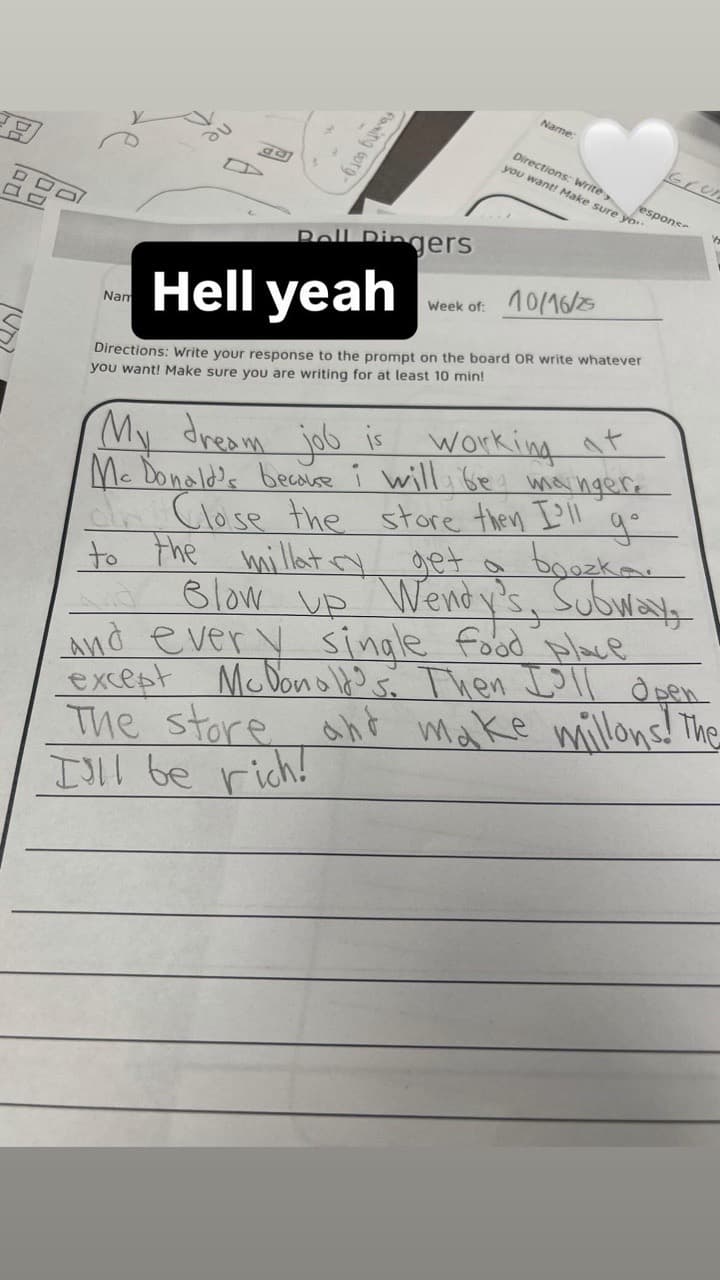 Name:
Directions: Write
you want! Make sure you
espons
Bell Ringers
Nam
Hell yeah
Week of: 10/16/25
Directions: Write your response to the prompt on the board OR write whatever
you want! Make sure you are writing for at least 10 min!
My dream job is working at
McDonald's because i will be mainger.
Close the store then I'll go
to the millatry get a boozka.
Blow up Wendy's, Subway,
and every single food place
except McDonald's. Then I'll open
The store and make millons! The
I'll be rich!